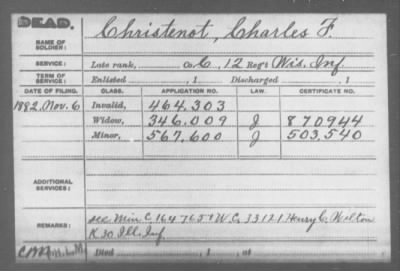 DEAD.
NAME OF SOLDIER: Christenot, Charles F.
SERVICE: Late rank, Co. C, 12 Reg't Wis. Inf
TERM OF SERVICE: Enlisted , 1 Discharged , 1
DATE OF FILING. CLASS. APPLICATION NO. LAW. CERTIFICATE NO.
1882. Nov. 6 Invalid, 464.303
Widow, 346.009 J 870944
Minor, 567.600 J 503.540
ADDITIONAL SERVICES:
REMARKS: see Min C. 164765 & W.C. 33121 Henry C. Wilton
K 30 Ill. Inf
Died , 1 , at